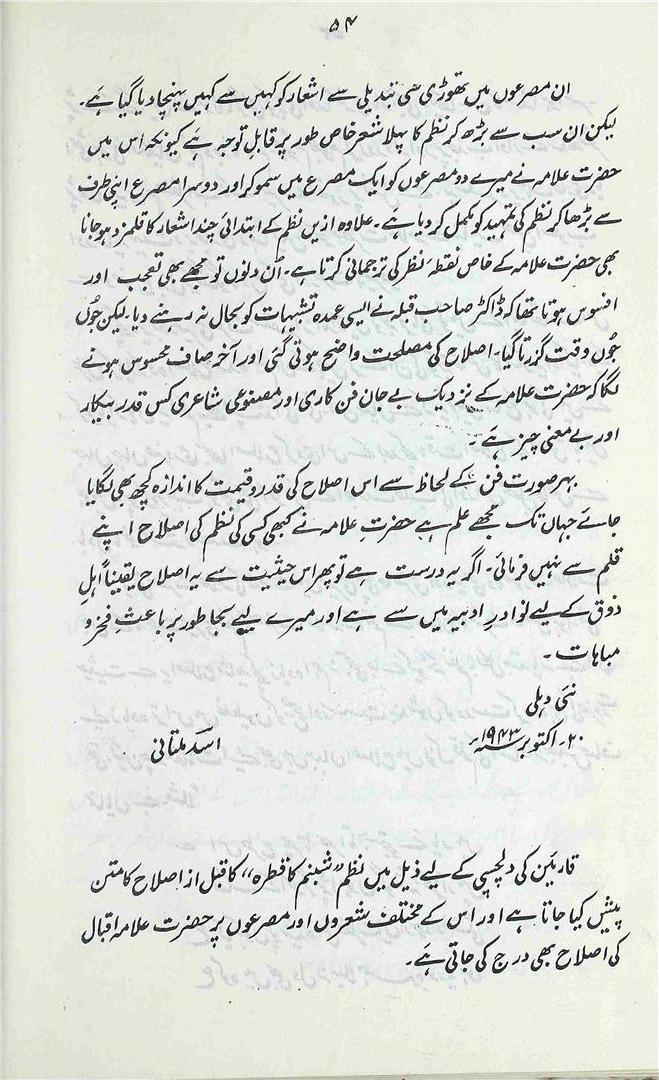 ۵۴
ان مصرعوں میں تھوڑی سی تبدیلی سے اشعار کو کہیں سے کہیں پہنچا دیا گیا ہے۔
لیکن ان سب سے بڑھ کر نظم کا پہلا شعر خاص طور پر قابلِ توجہ ہے کیونکہ اس میں
حضرت علامہ نے میرے دو مصرعوں کو ایک مصرع میں سمو کر اور دوسرا مصرع اپنی طرف
سے بڑھا کر نظم کی تمہید کو مکمل کر دیا ہے۔ علاوہ ازیں نظم کے ابتدائی چند اشعار کا قلمزد ہو جانا
بھی حضرت علامہ کے خاص نقطۂ نظر کی ترجمانی کرتا ہے۔ اُن دنوں تو مجھے بھی تعجب اور
افسوس ہوتا تھا کہ ڈاکٹر صاحب قبلہ نے ایسی عمدہ تشبیہات کو بحال نہ رہنے دیا۔ لیکن جُوں
جُوں وقت گزرتا گیا۔ اصلاح کی مصلحت واضح ہوتی گئی اور آخر صاف محسوس ہونے
لگا کہ حضرت علامہ کے نزدیک بے جان فن کاری اور مصنوعی شاعری کس قدر بیکار
اور بے معنی چیز ہے۔
بہر صورت فن کے لحاظ سے اس اصلاح کی قدر و قیمت کا اندازہ کچھ بھی لگایا
جائے جہاں تک مجھے علم ہے حضرتِ علامہ نے کبھی کسی کی نظم کی اصلاح اپنے
قلم سے نہیں فرمائی۔ اگر یہ درست ہے تو پھر اس حیثیت سے یہ اصلاح یقیناً اہلِ
ذوق کے لیے نوادرِ ادبیہ میں سے ہے اور میرے لیے بجا طور پر باعثِ فخر و
مباہات۔
نئی دہلی
۲۰۔ اکتوبر ۱۹۴۳ء اسد ملتانی
قارئین کی دلچسپی کے لیے ذیل میں نظم "شبنم کا قطرہ" کا قبل از اصلاح کا متن
پیش کیا جاتا ہے اور اس کے مختلف شعروں اور مصرعوں پر حضرت علامہ اقبال
کی اصلاح بھی درج کی جاتی ہے۔